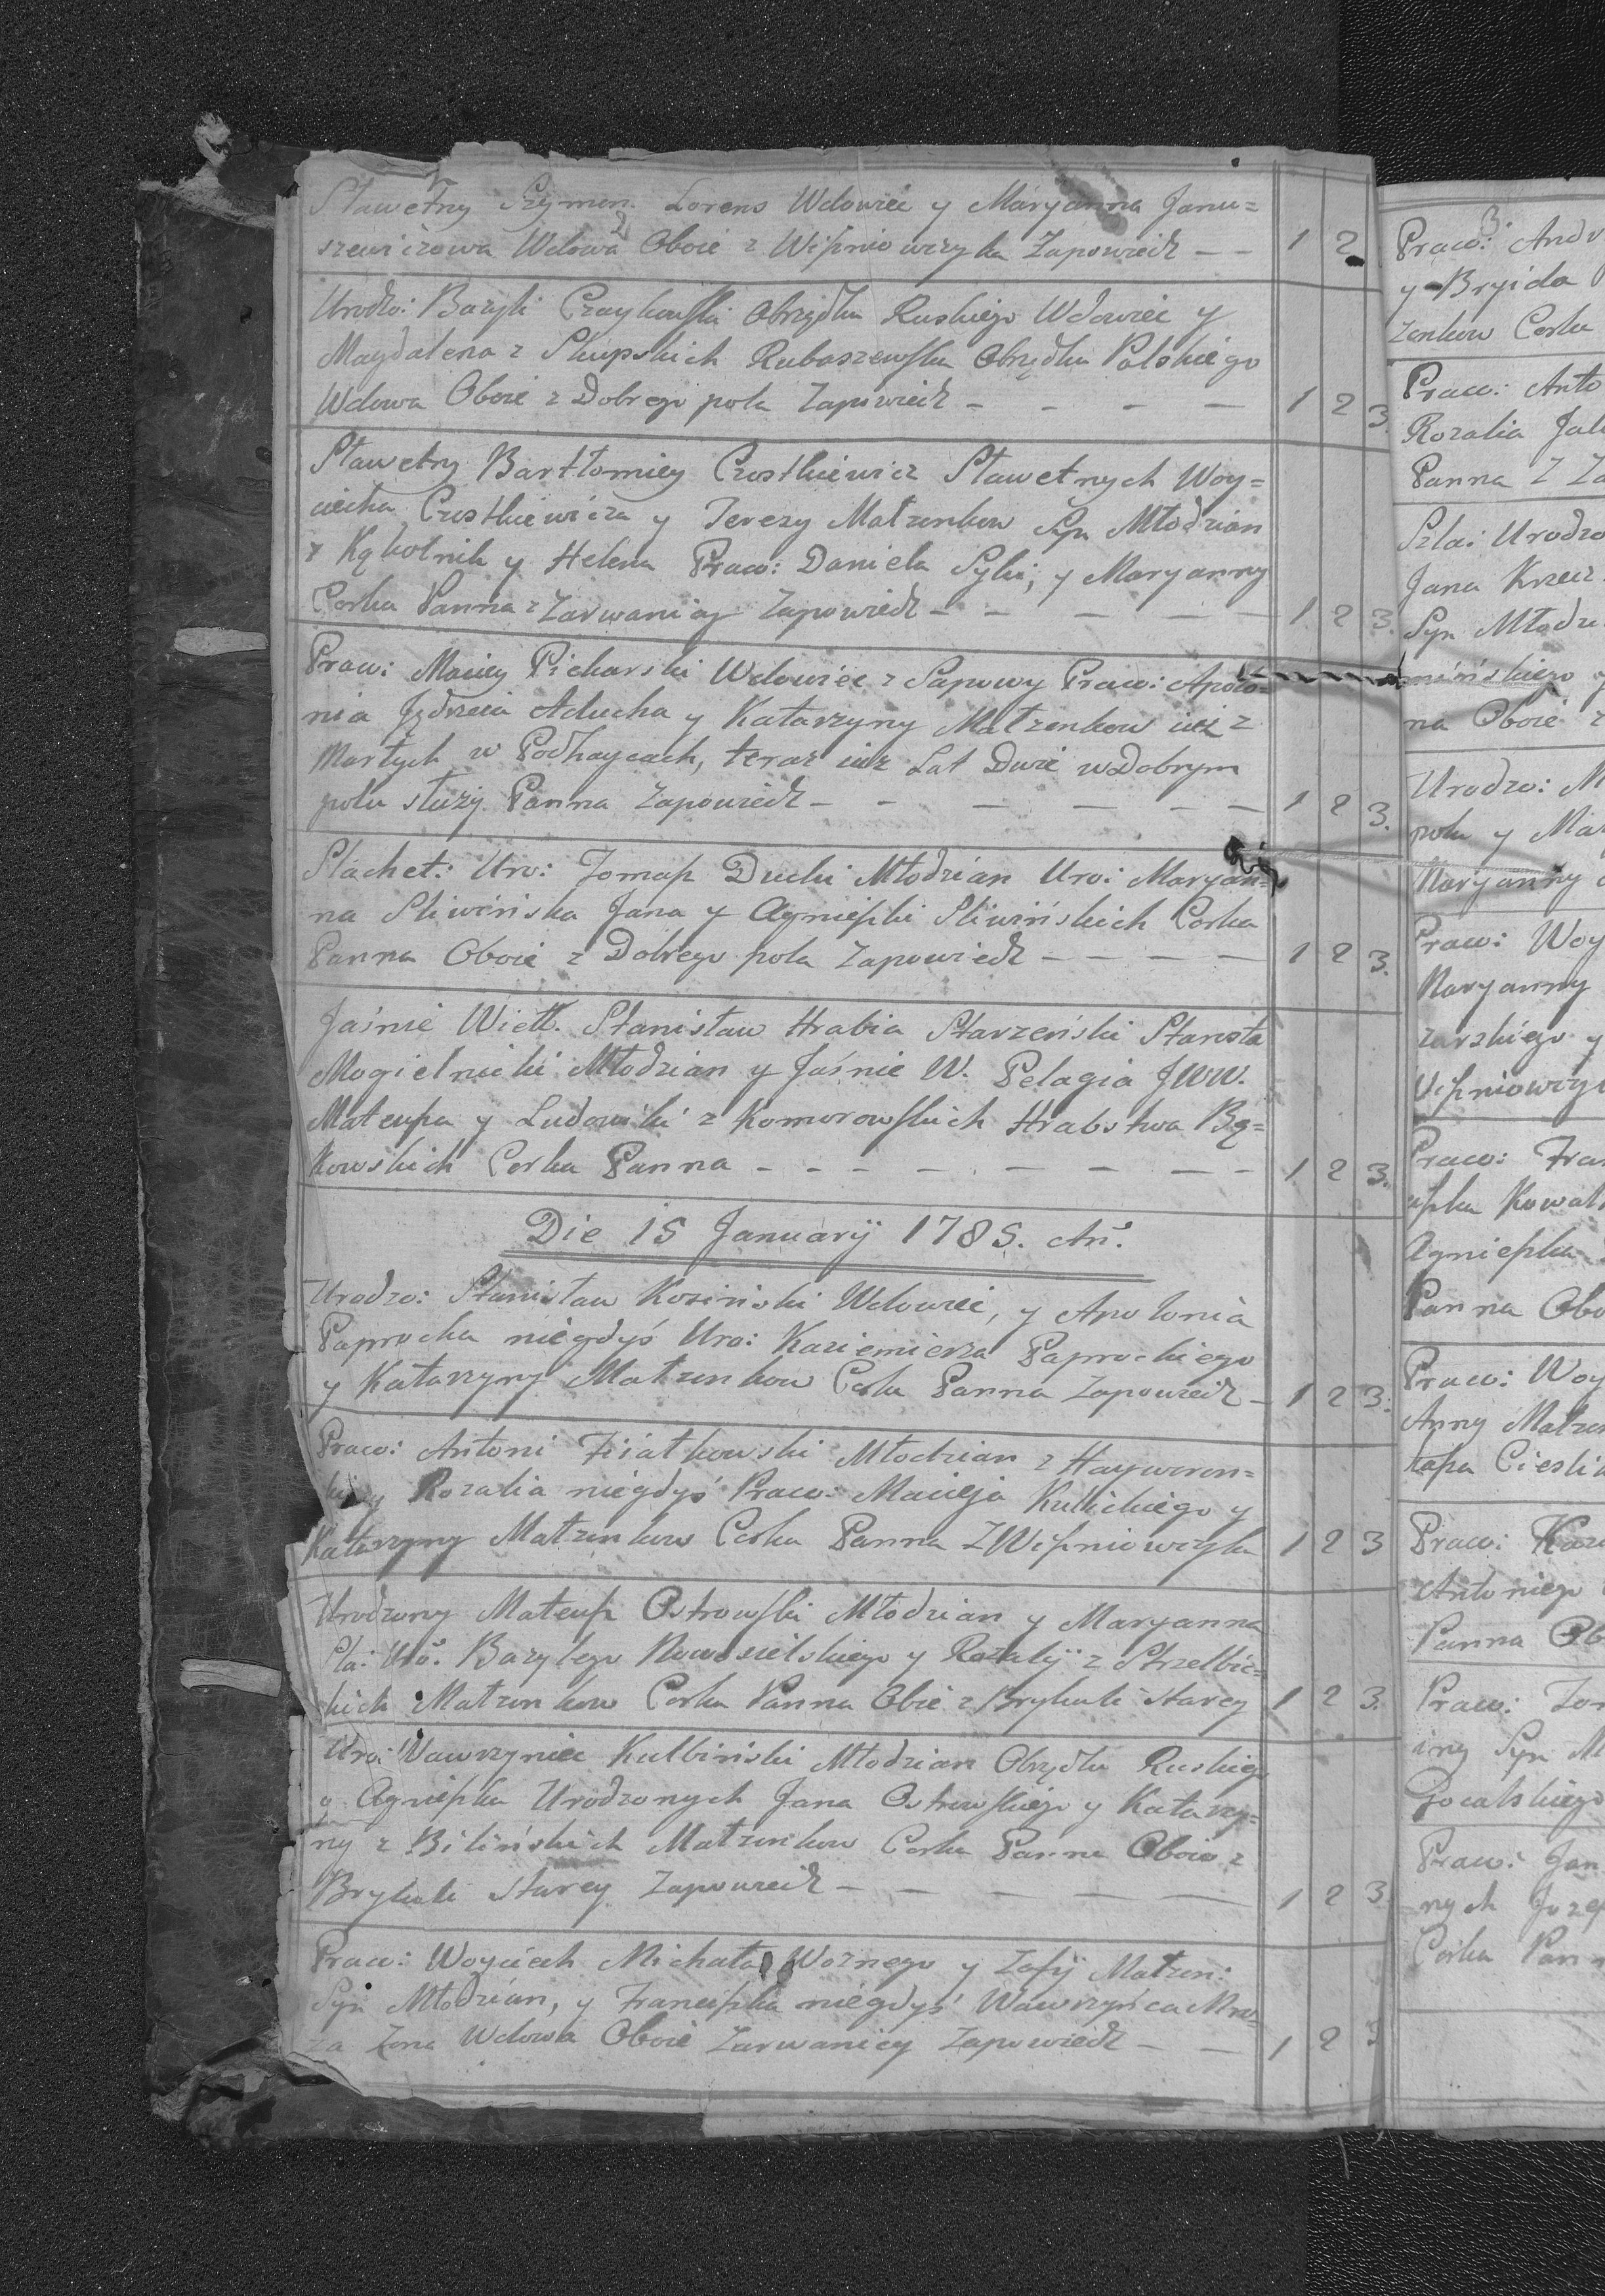 Sławetny Szymon Lorens Wdowiec y Maryanna Janu=
szewiczowa Wdowa Oboie z Wiśniowczyka Zapowiedź — — 1 2
Urodzo: Bazyli Czaykowski Obrządku Ruskiego Wdowiec y
Magdalena z Słupskich Rubaszewska Obrządku Polskiego
Wdowa Oboie z Dobrego pola Zapowiedź — — — — 1 2 3.
Sławetny Bartłomiey Czostkiewicz Sławetnych Woy=
ciecha Czostkiewicza y Terezy Małzonkow Syn Młodzian
z Kąkolnik y Helena Praw: Daniela Sylu; y Maryanny
Corka Panna z Zarwanicy Zapowiedź — — — — — 1 2 3.
Praw: Maciey Piekarski Wdowiec z Sapowy Praw: Apolo=
nia Jędrzeia Aducha y Katarzyny Małzonkow iuż z
Marłych w Podhaycach, teraz iuż Lat Dwie w Dobrym
polu służy Panna Zapowiedź — — — — — — 1 2 3.
Slachet: Uro: Tomasz Ducki Młodzian Uro: Maryan=
na Sliwińska Jana y Agnieszki Sliwińskich Corka
Panna Oboie z Dobrego pola Zapowiedź — — — — 1 2 3.
Jaśnie Wiel. Stanisław Hrabia Starzeński Starosta
Mogielnicki Młodzian y Jaśnie W. Pelagia JWW.
Mateusza y Ludowiki z Komorowskich Hrabstwa Bą=
kowskich Corka Panna — — — — — — — — 1 2 3.
Die 15 Januarÿ 1785. An.
Urodzo: Stanisław Kosiński Wdowiec, y Apolonia
Paprocka niegdyś Uro: Kaziemierza Paprockiego
y Katarzyny Małzonkow Corka Panna Zapowiedź — 1 2 3.
Praw: Antoni Fiiałkowski Młodzian z Hayworon=
ki y Rozalia niegdyś Praw: Macieja Kulickiego y
Katarzyny Małzonkow Corka Panna Z Wiśniowczyka 1 2 3
Urodzony Mateusz Ostrowski Młodzian y Maryanna
Sla: Uro: Bazylego Nowosielskiego y Rozalÿ z Strzelbic=
kich Małzonkow Corka Panna Obie z Brykuli Starey 1 2 3.
Uro: Wawrzyniec Kulbiński Młodzian Obrządku Ruskiego
y Agnieszka Urodzonych Jana Ostrowskiego y Katarzy=
ny z Bilińskich Małzonkow Corka Panna Oboie z
Brykuli Starey Zapowiedź — — — — — 1 2 3
Praw: Woyciech Michała Wożnego y Zofÿ Małzon:
Syn Młodzian, y Franciszka niegdyś Wawrzyńca
za Zona Wdowa Oboie Zarwanicy Zapowiedź — — 1 2 3
3
Praw:
y Bryida
zonkow Corka
Praw:
Rozalia
Panna Z
Szla:
Jana
Syn
mińskiego
na Oboie z
Urodzo:
pola y
Maryanny
Praw:
Maryanny
zarskiego y
Praw:
Agnieszka
Panna
Praw:
Anny
Praw:
Antoniego
Panna
Praw:
Syn
Praw: Jan
nych
Corka